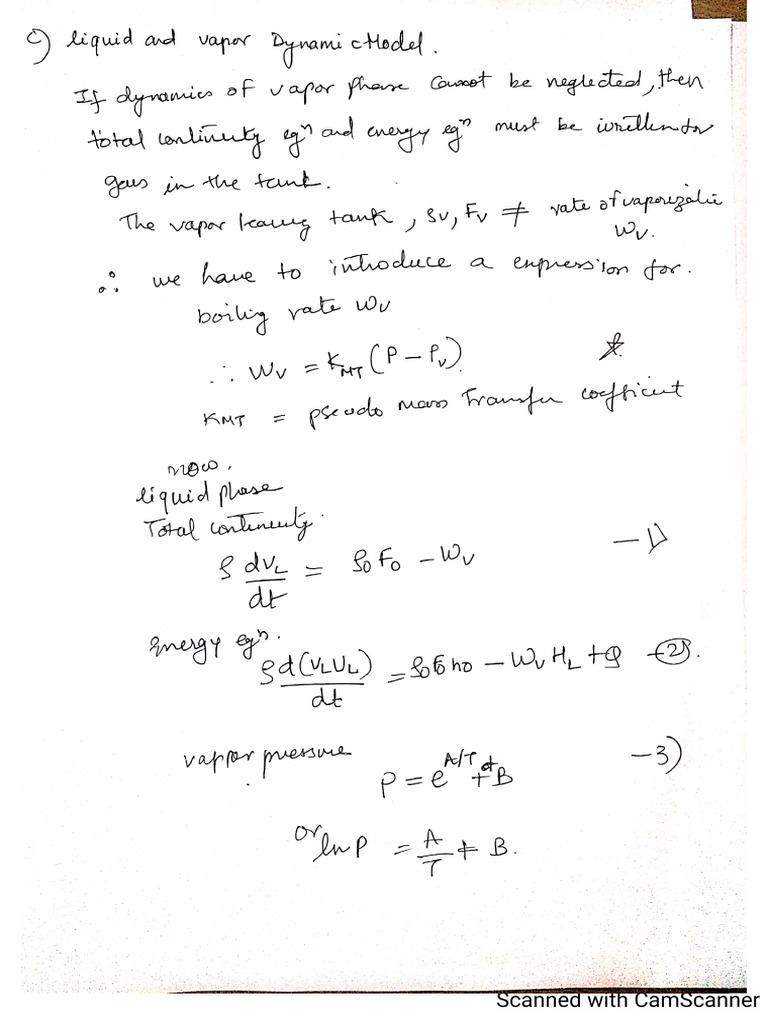 c) liquid and vapor Dynamic Model.
If dynamics of vapor phase cannot be neglected, then
total continuity eqⁿ and energy eqⁿ must be written for
gas in the tank.
The vapor leaving tank, ρv, Fv ≠ rate of vaporization
Wv.
∴ we have to introduce a expression for.
boiling rate Wv
∴ Wv = K_MT (P - Pv)
K_MT = pseudo mass Transfer coefficient
now,
liquid phase
Total continuity.
ρ dV_L/dt = ρ₀F₀ - Wv — 1)
Energy eqⁿ.
ρ d(V_L U_L)/dt = ρ₀F₀h₀ - Wv H_L + Q — 2).
vapor pressure
P = e^(A/T + B) — 3)
or ln P = A/T + B.
Scanned with CamScanner